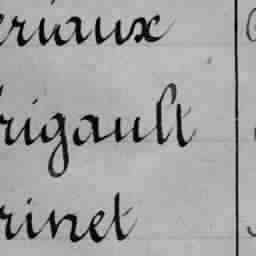 eriaux
rigault
rinet